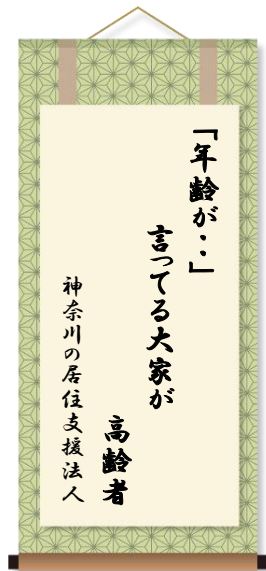 「年齢が・・」
言ってる大家が
高齢者
神奈川の居住支援法人